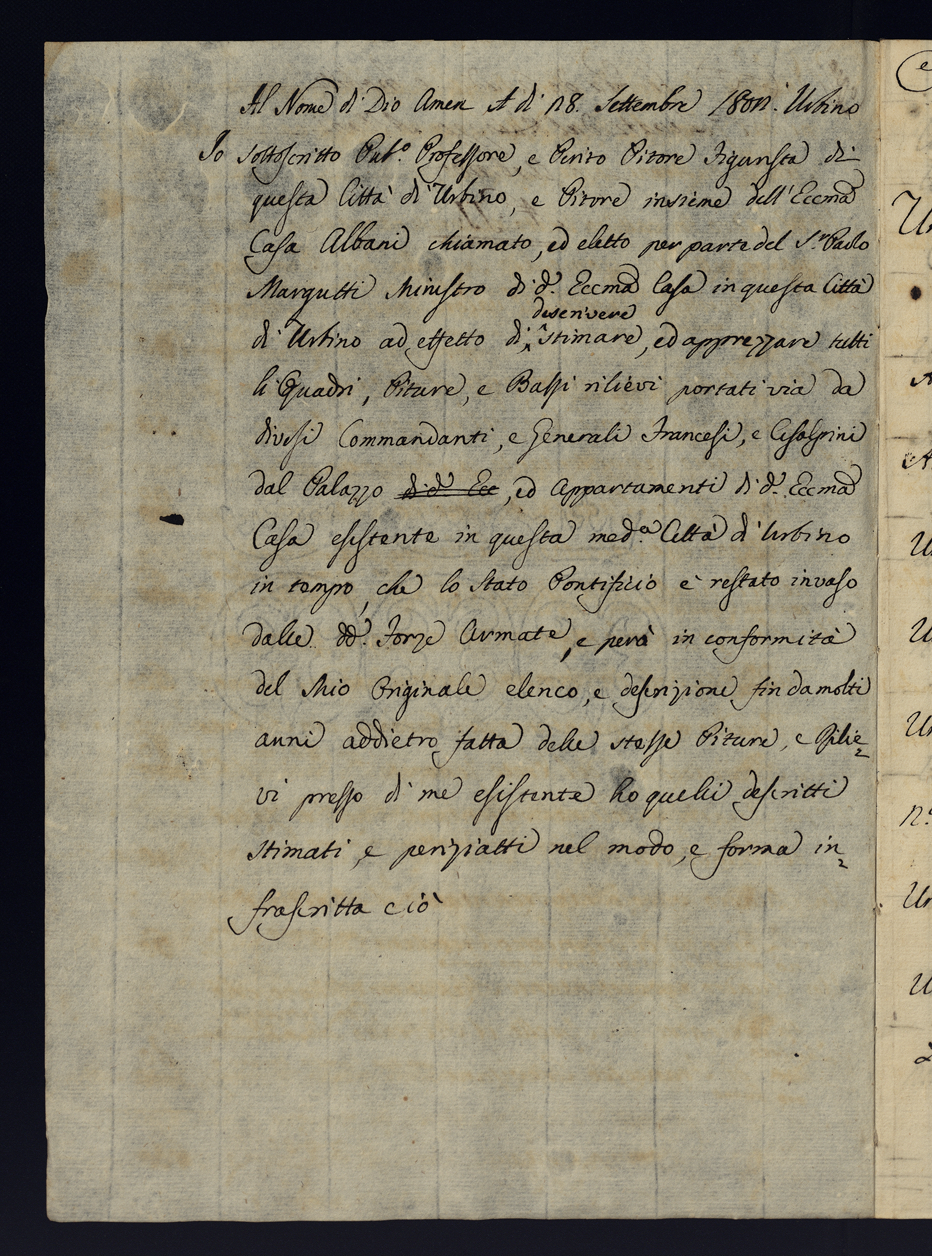 Al Nome di Dio Amen A di 18. Settembre 1801. Urbino
Io sottoscritto Pub.º Professore, e Perito Pitore Figurista di
questa Città di Urbino, e Pitore insieme dell'Eccma
Casa Albani chiamato, ed eletto per parte del S.r Paolo
Margutti Ministro di d.ª Eccma Casa in questa Città
descrivere
di Urbino ad effetto di ^ stimare, ed apprezzare tutti
li Quadri, Piture, e Bassi rilievi portati via da
diversi Commandanti, e Generali Francesi, e Cisalpini
dal Palazzo di d.ª Ecc, ed Appartamenti di d.ª Eccma
Casa esistente in questa med.ª Città di Urbino
in tempo, che lo Stato Pontificio è restato invaso
dalle dd.e Forze Armate, e però in conformità
del Mio Originale elenco, e descrizione fin da molti
anni addietro fatta delle stesse Piture, e Rilie=
vi presso di me esistente ho quelli descritti
stimati, e periziatti nel modo, e forma in=
frascritta cioè